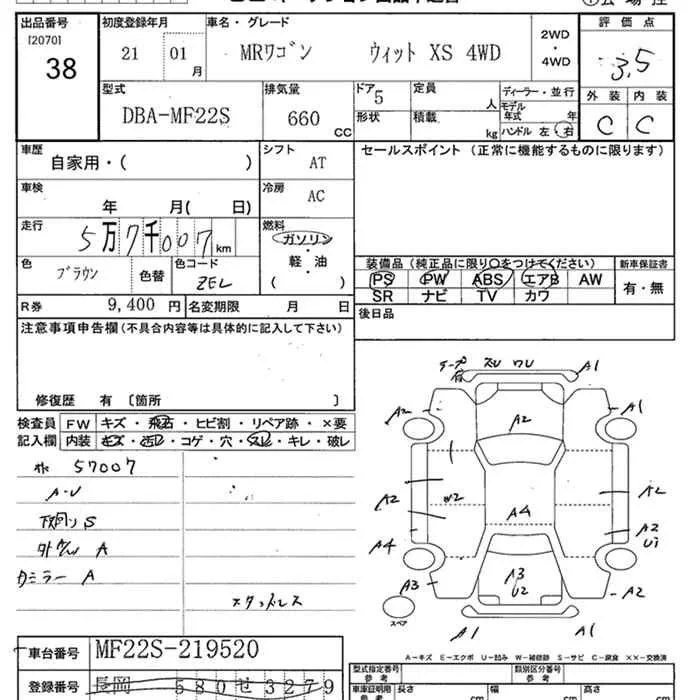 出品番号 初度登録年月 車名・グレード 2WD・4WD 評価点
[2070] 38 21 01月 MRワゴン ウィット XS 4WD 3.5
型式 排気量 ドア 5 定員 人 ディーラー・並行 外装 内装
DBA-MF22S 660 CC 形状 積載 kg モデル年式 年 C C
ハンドル 左・右
車歴 シフト セールスポイント (正常に機能するものに限ります)
自家用・( ) AT
車検 冷房
年 月( 日) AC
走行 燃料
5万7千007km ガソリン
軽・油
( )
色 色コード 装備品(純正品に限り○をつけてください) 新車保証書
ブラウン 色替 ZEL PS PW ABS エアB AW 有・無
R券 9,400 円 名変期限 月 日 SR ナビ TV カワ
注意事項申告欄(不具合内容等は具体的に記入して下さい) 後日品
修復歴 有 〔箇所 〕
検査員 FW キズ・飛石・ヒビ割・リペア跡・×要
記入欄 内装 キズ・汚レ・コゲ・穴・スレ・キレ・破レ
57007
A-U
下廻り S
A
ミラー A
スタッドレス
テープ有 ズU ワU A1
A2 A1
A2
A2 W2 A4 A2
A4 A2
U1
A3 A3 A2
U2
スペア A1 A1
車台番号 MF22S-219520
登録番号 長岡 580 せ 3279
A－キズ E－エクボ U－凹み W－補修跡 S－サビ C－腐食 ××－交換済
型式指定番号 参考 類別区分番号 参考
車庫証明用 参考 長さ 幅 高さ